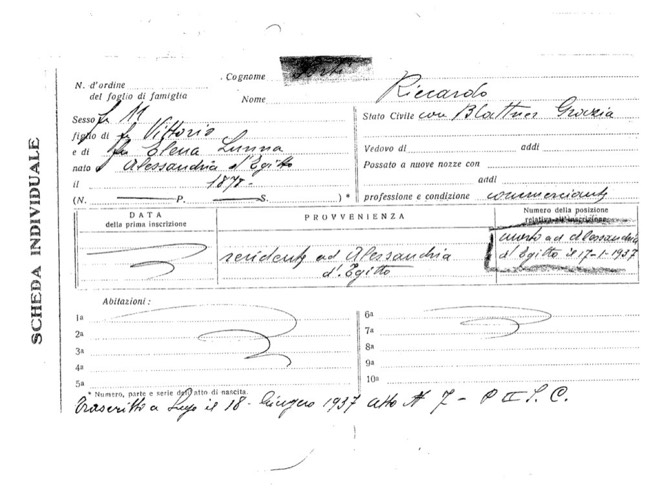 SCHEDA INDIVIDUALE
N. d'ordine
del foglio di famiglia
Cognome Forti
Nome Riccardo
Sesso M
figlio di fu Vittorio
e di fu Elena Lunna
nato a Alessandria d'Egitto
il 1878.
(N. P. S. ) *
Stato Civile con Blattner Grazia
Vedovo di addi
Passato a nuove nozze con
addi
professione e condizione commerciante
DATA
della prima inscrizione
PROVVENIENZA
Numero della posizione
relativa all'inscrizione
residente ad Alessandria
d'Egitto
morto ad Alessandria
d'Egitto il 17-1-1937
Abitazioni:
1a
2a
3a
4a
5a
6a
7a
8a
9a
10a
* Numero, parte e serie dell'atto di nascita.
Trascritto a Lugo il 18 Giugno 1937 atto N 7 - P II S. C.